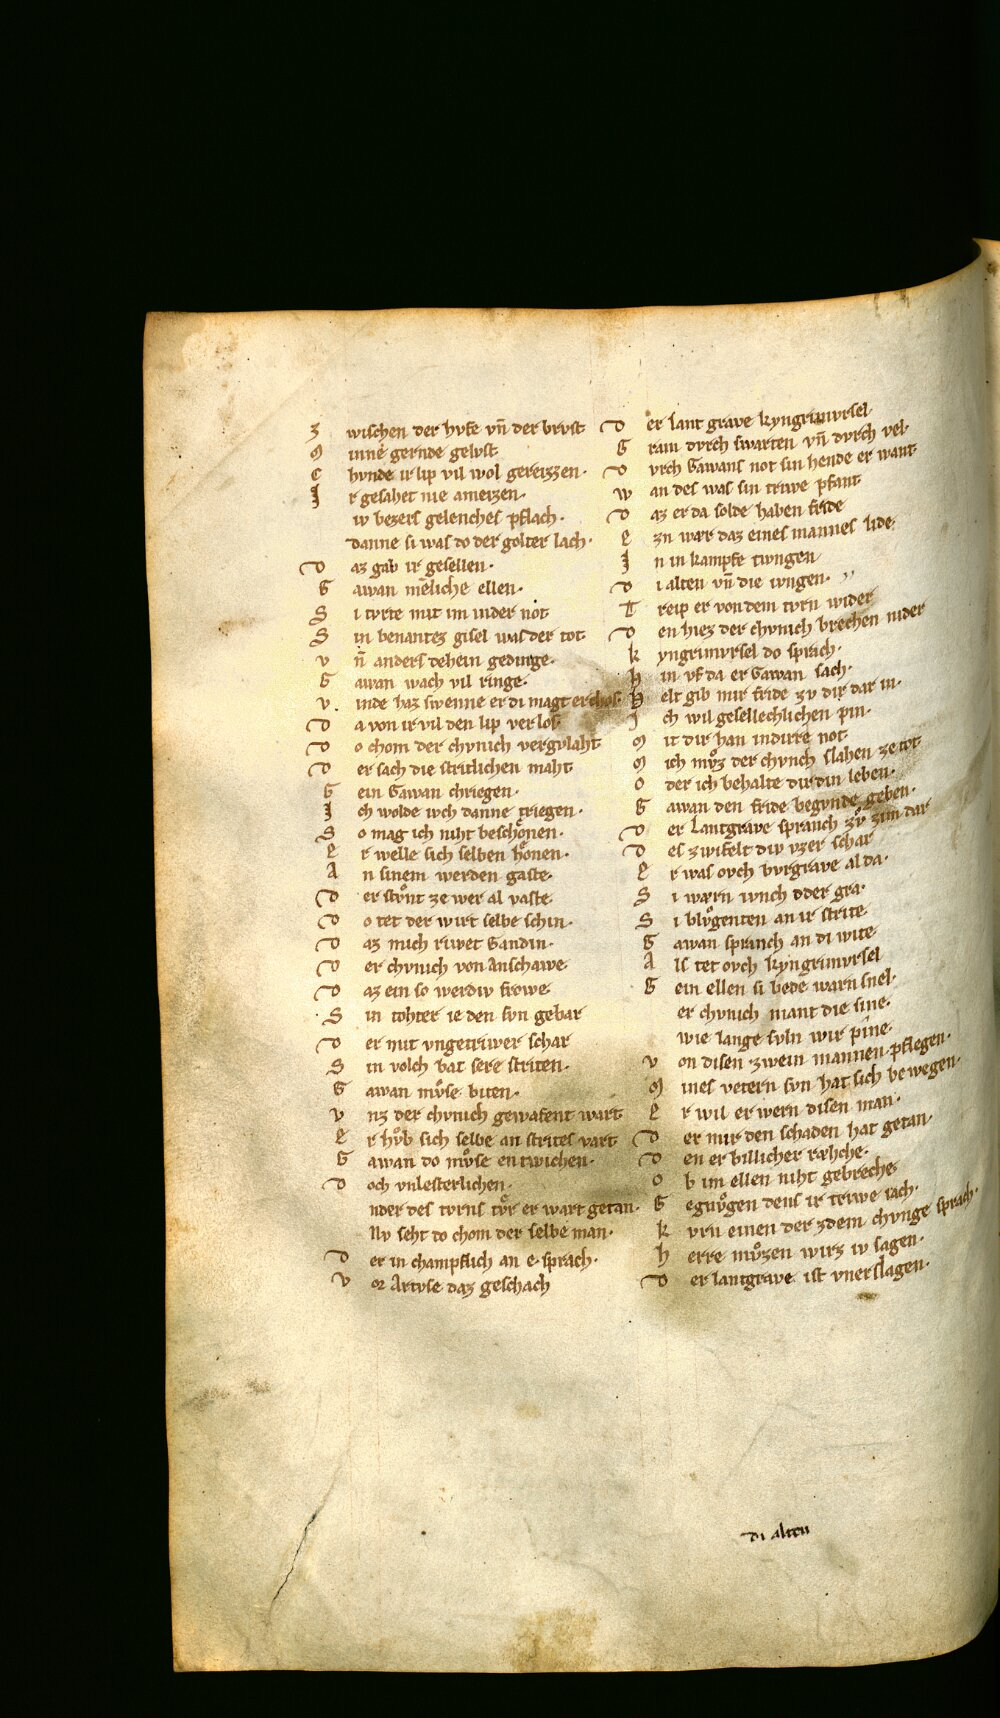 Z wischen der hvfe vn̄ der brvst
M inne gernde gelvst
C hvnde ir lip vil wol gereizzen·
J r gesahet nie ameizen·
iv bezers gelenches pflach·
danne si was do der golter lach·
D az gab ir gesellen·
G awan menliche ellen·
S i tvrte mit im in der not
S in benantez gisel was der tot
v n̄ anders dehein gedinge·
G awan wach vil ringe·
v inde haz swenne er di magt erchos·
D a von ir vil den lip verlos·
D o chom der chvnich vergvlaht
D er sach die stritlichen maht
G ein Gawan chriegen·
J ch wolde ivch danne triegen·
S o mag ich niht beschönen·
E r welle sich selben hönen·
A n sinem werden gaste·
D er stv̊nt ze wer al vaste
D o tet der wirt selbe schin·
D az mich riwet Gandin·
D er chvnich von Anschawe
D az ein so werdiv frowe
S in tohter ie den svn gebar
D er mit vngetriwer schar
S in volch bat sere striten·
G awan mv̊se biten·
v nz der chvnich gewafent wart
E r hv̊b sich selbe an strites vart
G awan do mv̊se entwichen·
D och vnlesterlichen·
nder des tvrns tv̊r er wart getan·
Nv seht do chom der selbe man·
D er in champflich an e· sprach·
v or Artvse daz geschach
D er lant grave kyngrimvrsel
G ram dvrch swarten vn̄ dvrch vel·
D vrch Gawans not sin hende er want
w an des was sin triwe pfant
D az er da solde haben fride
E zn wær daz eines mannes lide·
J n in kampfe twngen
D i alten vn̄ die ivngen·
T reip er von dem tvrn wider
D en hiez der chvnich brechen nider
k yngrimvrsel do sprach·
h in vf da er Gawan sach·
h elt gib mir fride zv dir dar in·
J ch wil gesellechlichen pin·
M it dir han in dirre not
M ich mv̊z der chvnch slahen ze tot
O der ich behalte dir din leben·
G awan den fride begvnde geben·
D er Lantgrave spranch zv̊ zim dar
D es zwifelt div vzer schar
E r was ovch bvrgrave al da·
S i wærn ivnch oder gra·
S i blv̊genten an ir strite
G awan spranch an di wite
A ls tet ovch kyngrimvrsel
G ein ellen si bede warn snel·
er chvnich mant die sine·
wie lange svln wir pine·
v on disen zwein mannen pflegen·
M ines vetern svn hat sich bewegen·
E r wil erwern disen man·
D er mir den schaden hat getan·
D en er billicher ræhche·
O b im ellen niht gebreche·
G egnv̊gen dens ir triwe iach·
k vrn einen der zdem chvnge sprach·
h erre mv̊zen wirz iv sagen·
D er lantgrave ist vnerslagen·
di alten